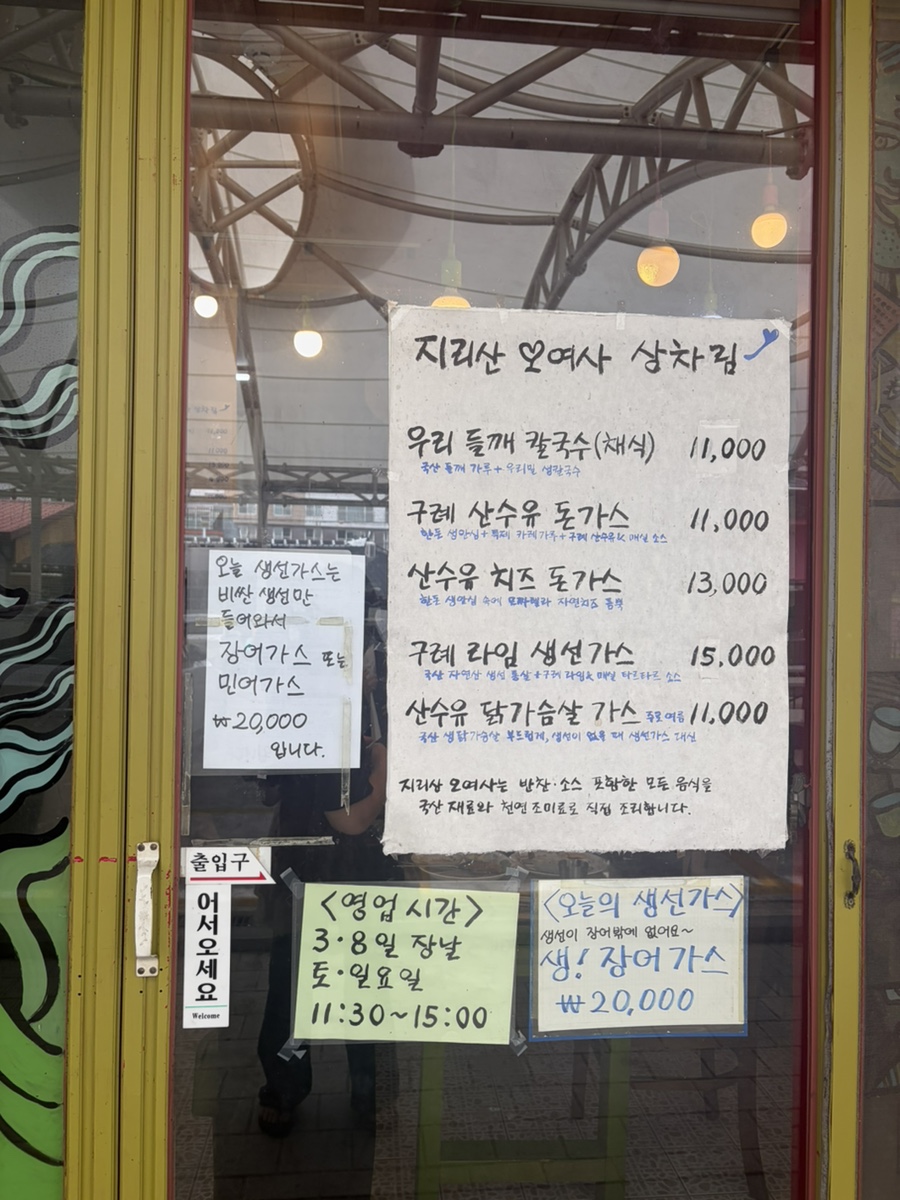 지리산 오여사 상차림
우리 들깨 칼국수(채식) 11,000
국산 들깨 가루 + 우리밀 생칼국수
구례 산수유 돈가스 11,000
한돈 생안심 + 특제 카레가루 + 구례 산수유& 매실 소스
산수유 치즈 돈가스 13,000
한돈 생안심 속에 모짜렐라 자연치즈 듬뿍
구례 라임 생선가스 15,000
국산 자연산 생선 통살 + 구례 라임& 매실 타르타르 소스
산수유 닭가슴살 가스 주로 여름 11,000
국산 생닭가슴살 부드럽게, 생선이 없을 때 생선가스 대신
지리산 오여사는 반찬·소스 포함한 모든 음식을
국산 재료와 천연 조미료로 직접 조리합니다.
오늘 생선가스는
비싼 생선만
들어와서
장어가스 또는
민어가스
₩20,000
입니다.
출입구
어서오세요
Welcome
<영업 시간>
3·8일 장날
토·일요일
11:30~15:00
<오늘의 생선가스>
생선이 장어밖에 없어요~
생! 장어가스
₩20,000